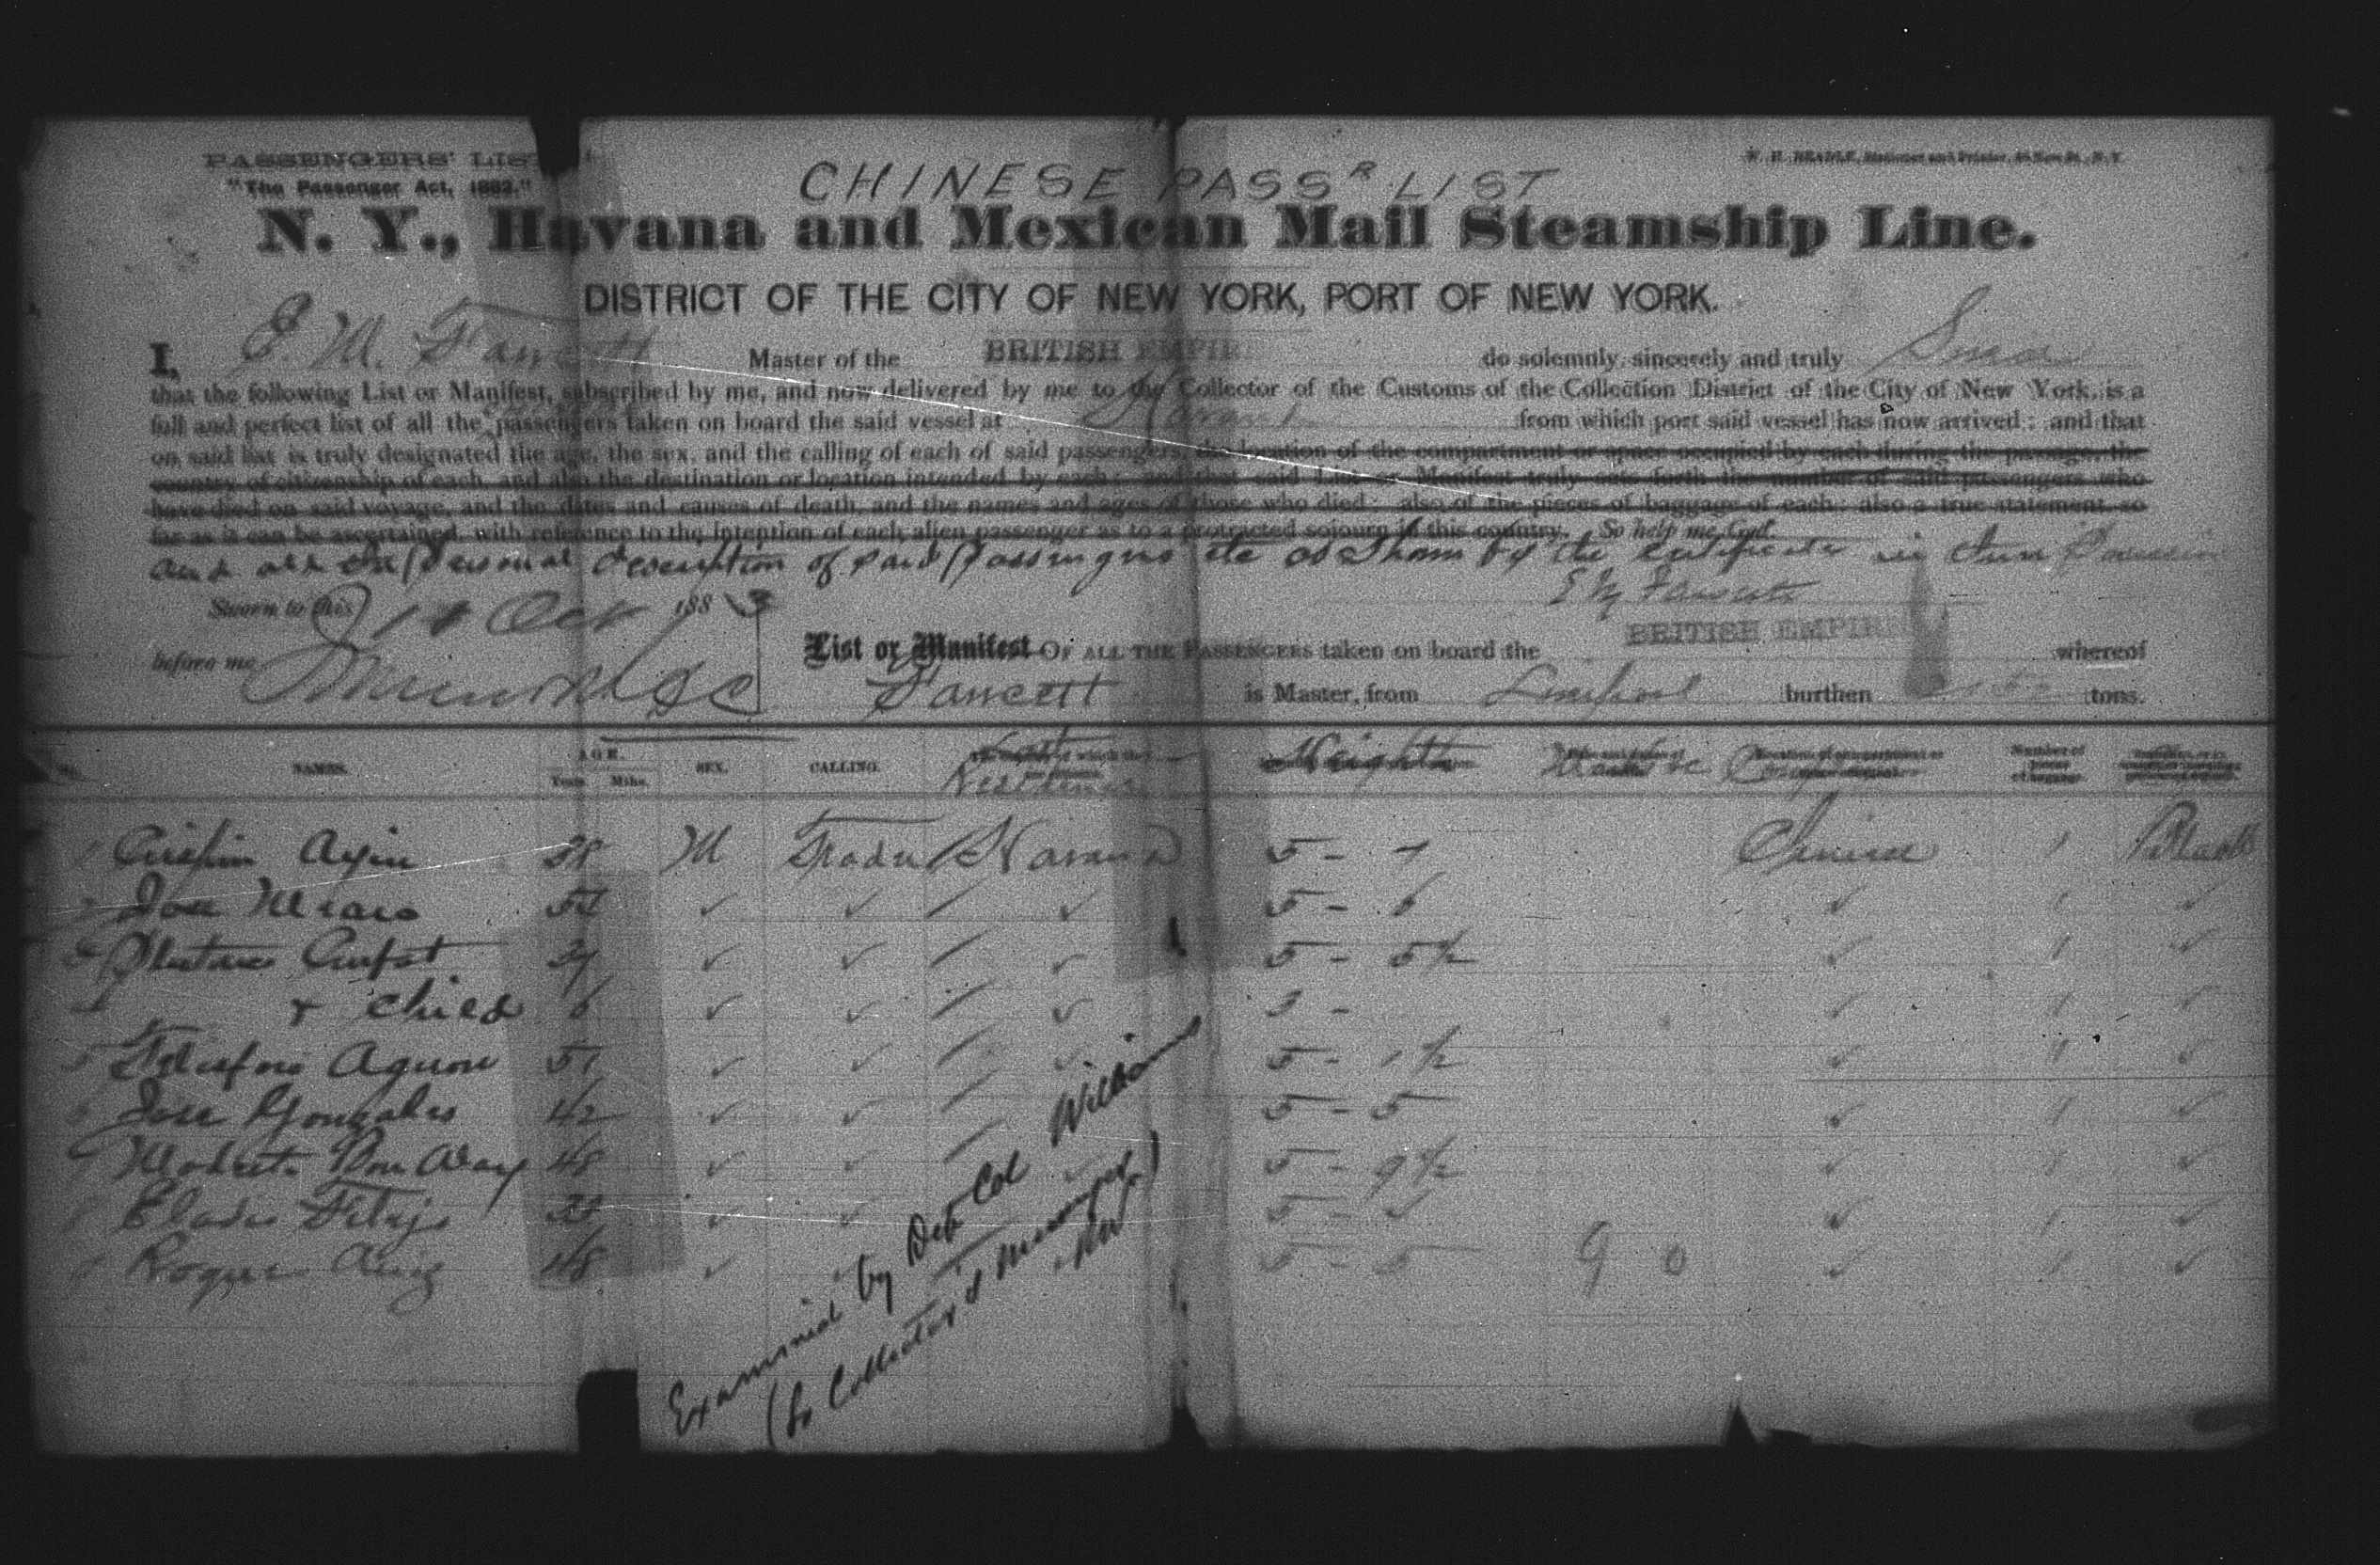 PASSENGERS' LIST
"The Passenger Act, 1882."
CHINESE PASSR LIST
N. Y., Havana and Mexican Mail Steamship Line.
DISTRICT OF THE CITY OF NEW YORK, PORT OF NEW YORK.
I, E. M. Fawcett Master of the BRITISH EMPIRE do solemnly, sincerely and truly
that the following List or Manifest, subscribed by me, and now delivered by me to the Collector of the Customs of the Collection District of the City of New York, is a
full and perfect list of all the passengers taken on board the said vessel at Havana from which port said vessel has now arrived; and that
on said list is truly designated the age, the sex, and the calling of each of said passengers, the location of the compartment or space occupied by each during the passage, the
country of citizenship of each, and also the destination or location intended by each; and that said List or Manifest truly sets forth the number of said passengers who
have died on said voyage, and the dates and causes of death, and the names and ages of those who died; also of the pieces of baggage of each; also a true statement, so
far as it can be ascertained, with reference to the intention of each alien passenger as to a protracted sojourn in this country. So help me God.
and all the personal description of said passengers etc as shown by the certificate in their
Sworn to this 18 Oct 1883
E M Fawcett
before me
List or Manifest OF ALL THE PASSENGERS taken on board the BRITISH EMPIRE whereof
Fawcett is Master, from Liverpool burthen tons.
No. NAMES. AGE. Years Mths. SEX. CALLING. Residence Height Number of pieces of baggage
1 Crispin Ayin 28 M Trader Havana 5 - 4 Chinese 1 Black
Jose 5 - 6 1
5 - 5 1/2 1
4 & child 6 3 - 1
5 Agune 51 5 - 1 1/2 1
6 Jose Gonzales 42 5 - 5 1
48 5 - 9 1/2 1
5 -
Roque Ruiz 48 5 - 5 1
Examined by Dep Col Williams